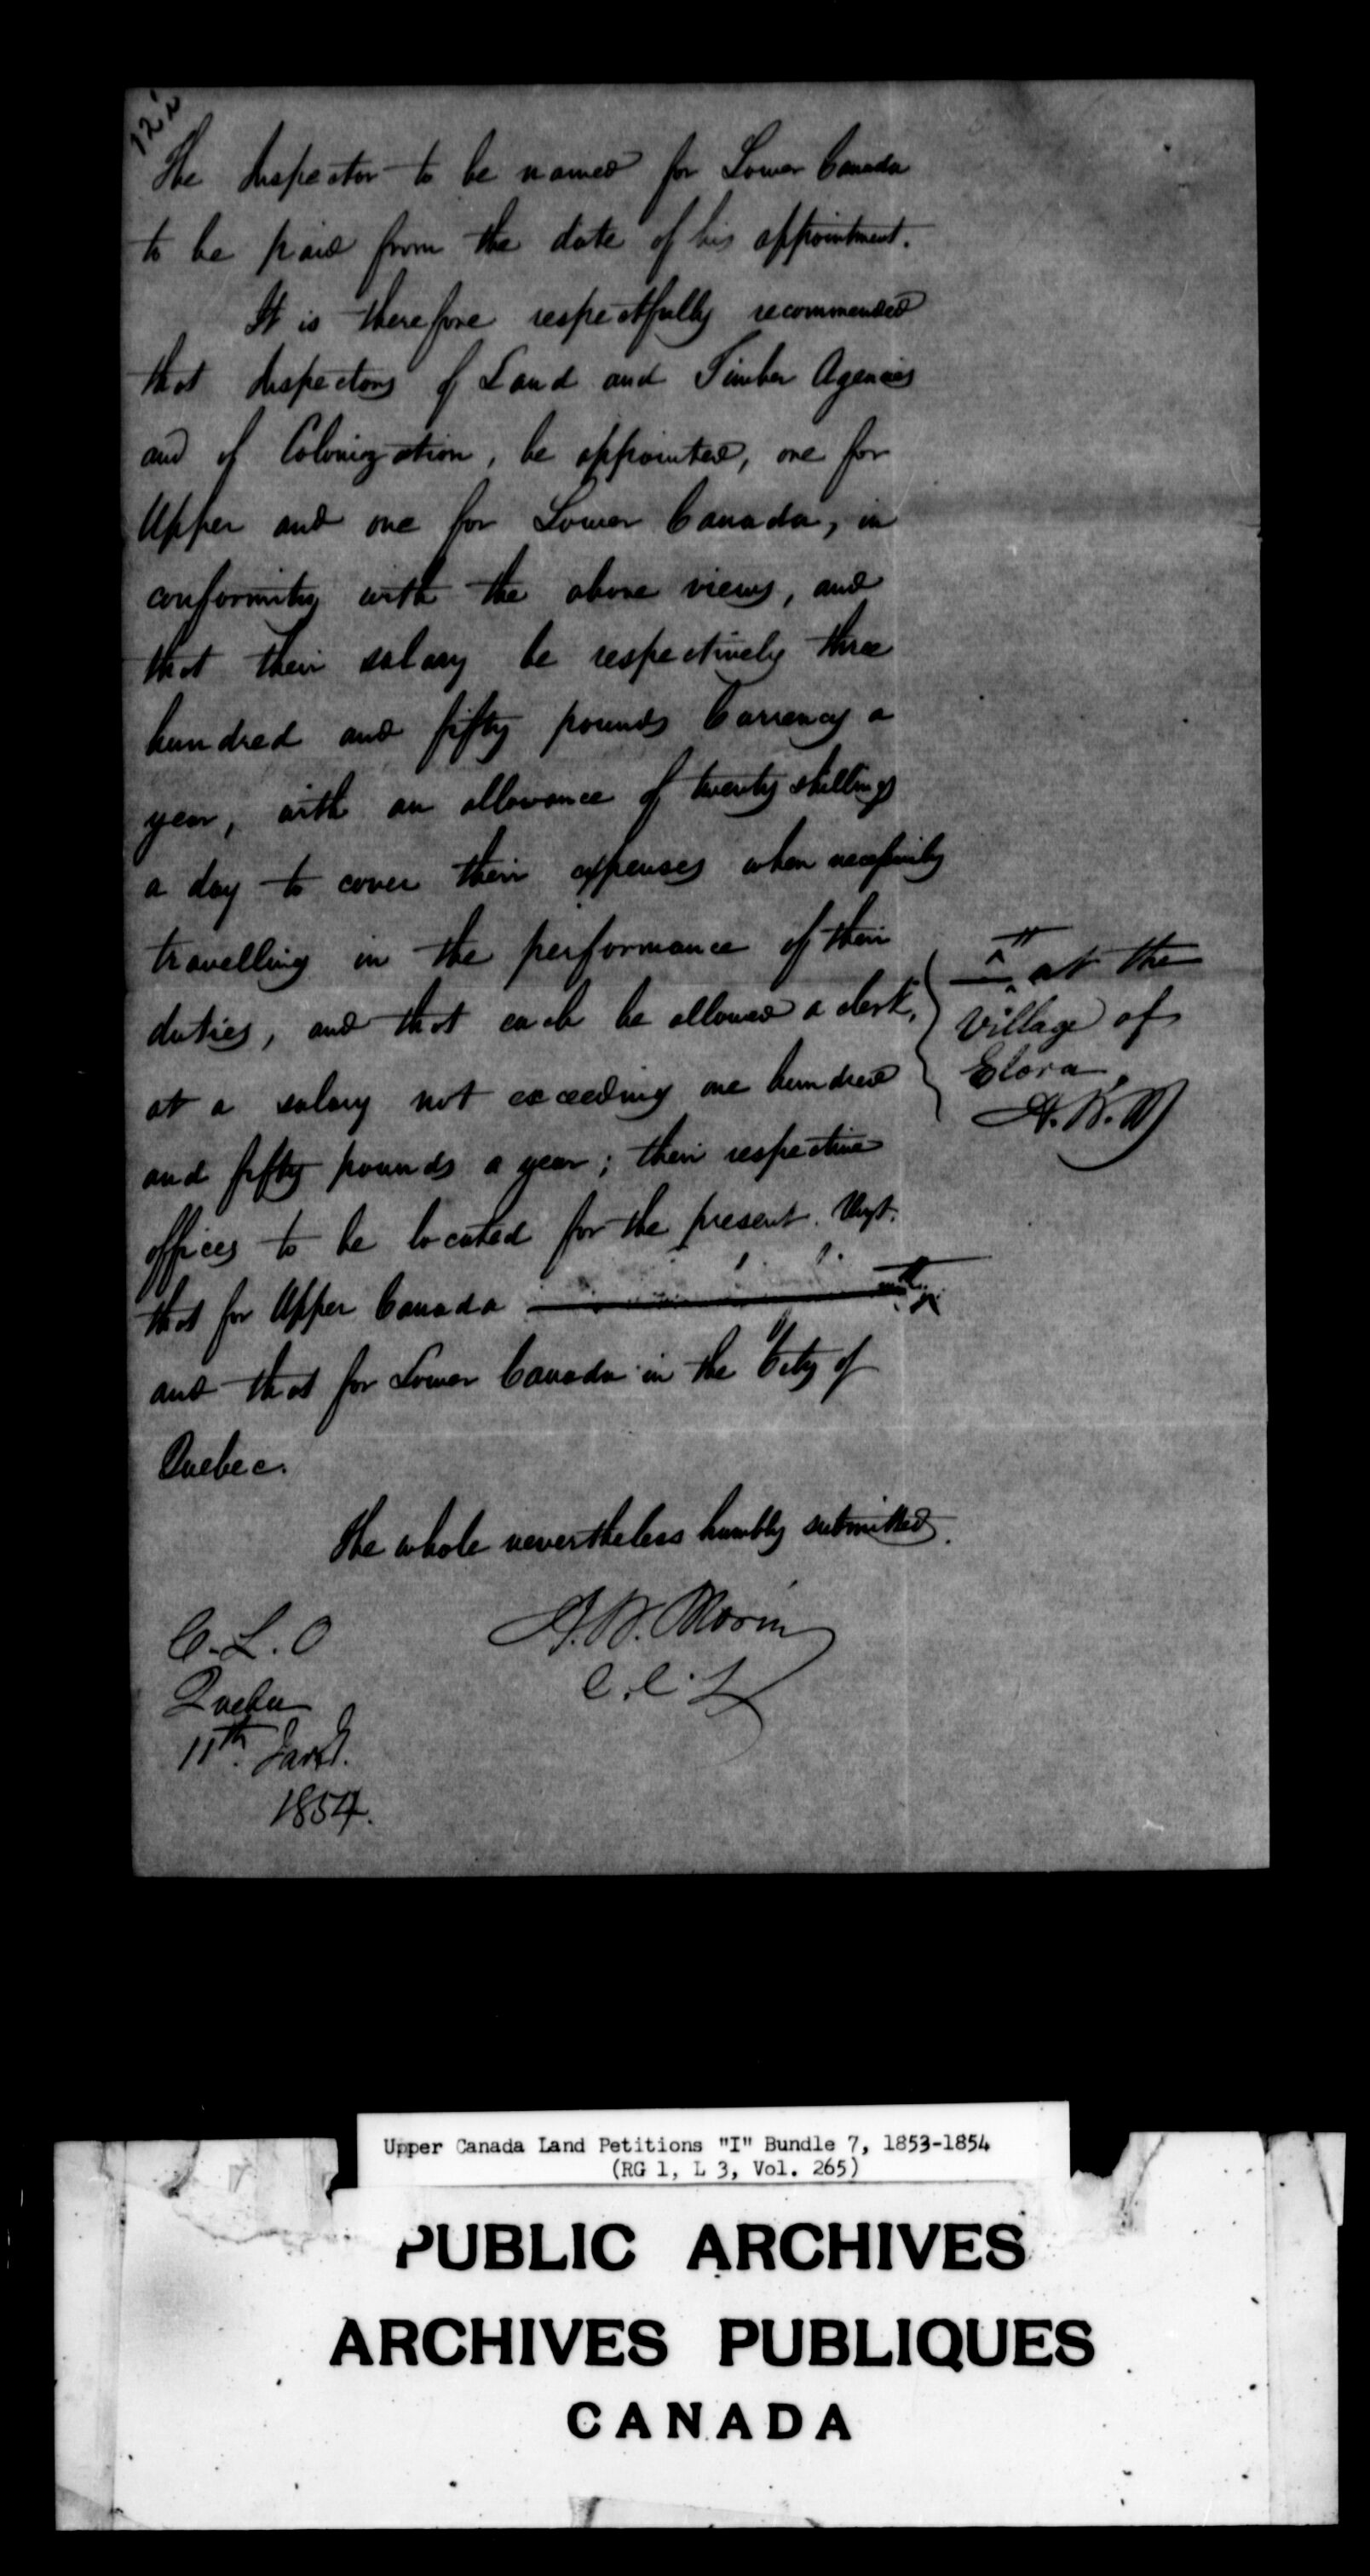 The Inspector to be named for Lower Canada
to be paid from the date of his appointment.
It is therefore respectfully recommended
that Inspectors of Land and Timber Agencies
and of Colonization, be appointed, one for
Upper and one for Lower Canada, in
conformity with the above views, and
that their salary be respectively three
hundred and fifty pounds Currency a
year, with an allowance of twenty shillings
a day to cover their expenses when necessarily
travelling in the performance of their
duties, and that each be allowed a clerk,
at a salary not exceeding one hundred
and fifty pounds a year; their respective
offices to be located for the present.
that for Upper Canada
and that for Lower Canada in the City of
Quebec.
at the
Village of
Elora.
A.N.M
The whole nevertheless humbly submitted.
A.N. Morin
C.C.L
C.L.O
Quebec
11th. Jany.
1854.
Upper Canada Land Petitions "I" Bundle 7, 1853-1854
(RG 1, L 3, Vol. 265)
PUBLIC ARCHIVES
ARCHIVES PUBLIQUES
CANADA